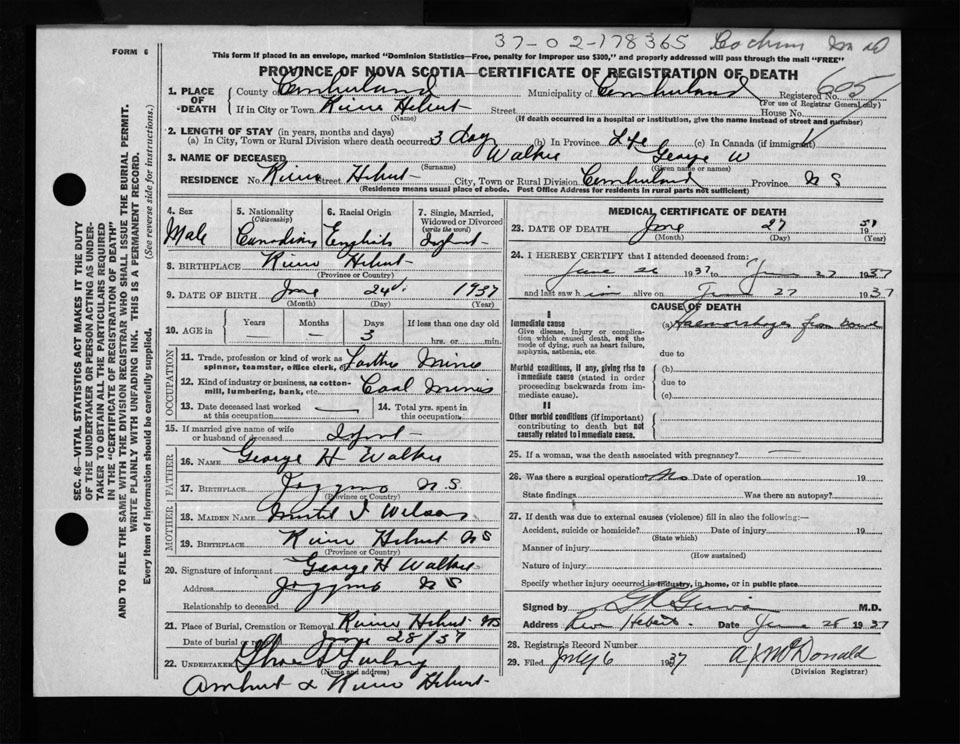 37-02-178365
FORM 6
This form if placed in an envelope, marked "Dominion Statistics—Free, penalty for improper use $300," and properly addressed will pass through the mail "FREE"
PROVINCE OF NOVA SCOTIA—CERTIFICATE OF REGISTRATION OF DEATH
Registered No. 605
(For use of Registrar General only)
1. PLACE OF DEATH
County of Cumberland Municipality of Cumberland
If in City or Town River Hebert Street House No.
(Name) (If death occurred in a hospital or institution, give the name instead of street and number)
2. LENGTH OF STAY (in years, months and days)
(a) In City, Town or Rural Division where death occurred 3 day (b) In Province Life (c) In Canada (if immigrant)
3. NAME OF DECEASED Walker George W
(Surname) (Given name or names)
RESIDENCE No. River Street Hebert City, Town or Rural Division Cumberland Province N S
(Residence means usual place of abode. Post Office Address for residents in rural parts not sufficient)
4. Sex Male
5. Nationality (Citizenship) Canadian
6. Racial Origin English
7. Single, Married, Widowed or Divorced (write the word) Infant
8. BIRTHPLACE River Hebert
(Province or Country)
9. DATE OF BIRTH June 24 1937
(Month) (Day) (Year)
10. AGE in Years Months — Days 3 If less than one day old hrs. or min.
OCCUPATION
11. Trade, profession or kind of work as spinner, teamster, office clerk, etc.
12. Kind of industry or business, as cotton-mill, lumbering, bank, etc. Coal Mines
13. Date deceased last worked at this occupation —
14. Total yrs. spent in this occupation
15. If married give name of wife or husband of deceased Infant
FATHER
16. NAME George H Walker
17. BIRTHPLACE N S
(Province or Country)
MOTHER
18. MAIDEN NAME Wilson
19. BIRTHPLACE River Hebert N S
(Province or Country)
20. Signature of informant George H Walker
Address N S
Relationship to deceased
21. Place of Burial, Cremation or Removal River Hebert NS
Date of burial or removal June 28/37
22. UNDERTAKER
(Name and address)
Amherst & River Hebert
MEDICAL CERTIFICATE OF DEATH
23. DATE OF DEATH June 27 19
(Month) (Day) (Year)
24. I HEREBY CERTIFY that I attended deceased from:
June 1937 to June 27 1937
and last saw him alive on June 27 1937
CAUSE OF DEATH
I
Immediate cause
Give disease, injury or complication which caused death, not the mode of dying, such as heart failure, asphyxia, asthenia, etc.
(a) Haemorrhage from
due to
Morbid conditions, if any, giving rise to immediate cause (stated in order proceeding backwards from immediate cause).
(b)
due to
(c)
II
Other morbid conditions (if important) contributing to death but not causally related to immediate cause.
25. If a woman, was the death associated with pregnancy? —
26. Was there a surgical operation? No Date of operation 19
State findings Was there an autopsy?
27. If death was due to external causes (violence) fill in also the following:—
Accident, suicide or homicide? Date of injury 19
(State which)
Manner of injury
(How sustained)
Nature of injury
Specify whether injury occurred in industry, in home, or in public place
Signed by M.D.
Address River Hebert Date June 28 1937
28. Registrar's Record Number
29. Filed July 6 1937 A J McDonald
(Division Registrar)
SEC. 46—VITAL STATISTICS ACT MAKES IT THE DUTY
OF THE UNDERTAKER OR PERSON ACTING AS UNDER-
TAKER TO OBTAIN ALL THE PARTICULARS REQUIRED
IN THE "CERTIFICATE OF REGISTRATION OF DEATH"
AND TO FILE THE SAME WITH THE DIVISION REGISTRAR WHO SHALL ISSUE THE BURIAL PERMIT.
WRITE PLAINLY WITH UNFADING INK. THIS IS A PERMANENT RECORD.
Every item of information should be carefully supplied. (See reverse side for instructions.)